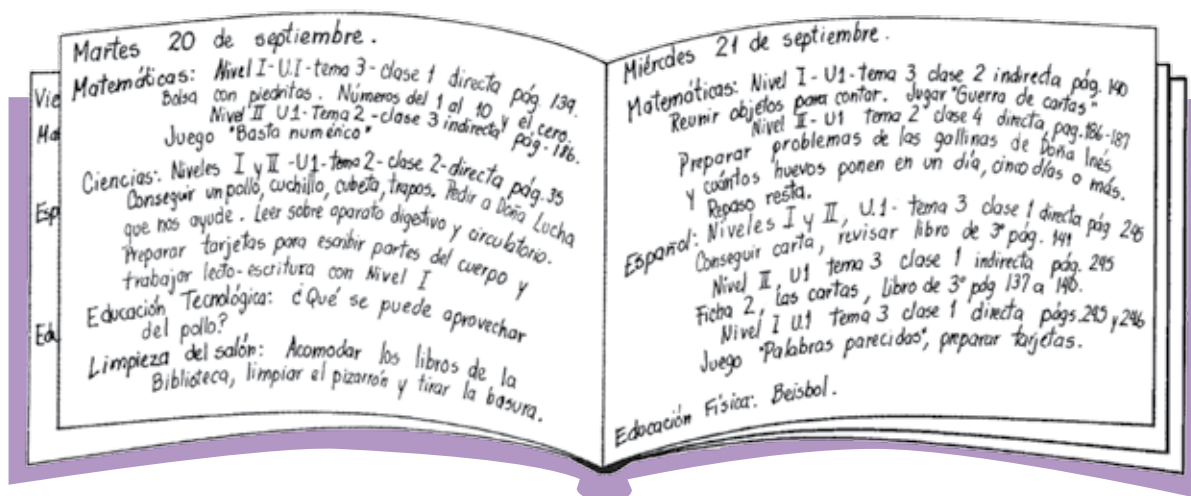 Vie
Ma
Esp
Ed
Martes 20 de septiembre.
Matemáticas: Nivel I-U.I-tema 3-clase 1 directa pág. 139.
Bolsa con piedritas. Números del 1 al 10 y el cero.
Nivel II U1-Tema 2-clase 3 indirecta pág-186.
Juego "Basta numérico"
Ciencias: Niveles I y II -U1-tema 2-clase 2-directa pág. 35
Conseguir un pollo, cuchillo, cubeta, trapos. Pedir a Doña Lucha
que nos ayude. Leer sobre aparato digestivo y circulatorio.
Preparar tarjetas para escribir partes del cuerpo y
trabajar lecto-escritura con Nivel I
Educación Tecnológica: ¿Qué se puede aprovechar
del pollo?
Limpieza del salón: Acomodar los libros de la
Biblioteca, limpiar el pizarrón y tirar la basura.
Miércoles 21 de septiembre.
Matemáticas: Nivel I-U1-tema 3 clase 2 indirecta pág. 140
Reunir objetos para contar. Jugar "Guerra de cartas"
Nivel II-U1 tema 2 clase 4 directa, pag.186-187
Preparar problemas de las gallinas de Doña Inés
y cuántos huevos ponen en un día, cinco días o más.
Repaso resta.
Español: Niveles I y II, U.1- tema 3 clase 1 directa pág 245
Conseguir carta, revisar libro de 3º pág. 141
Nivel II, U1 tema 3 clase 1 indirecta pág. 245
Ficha 2, las cartas, Libro de 3º pág 137 a 140.
Nivel I U.1 tema 3 clase 1 directa págs.245 y 246
Juego "Palabras parecidas", preparar tarjetas.
Educación Física: Beisbol.